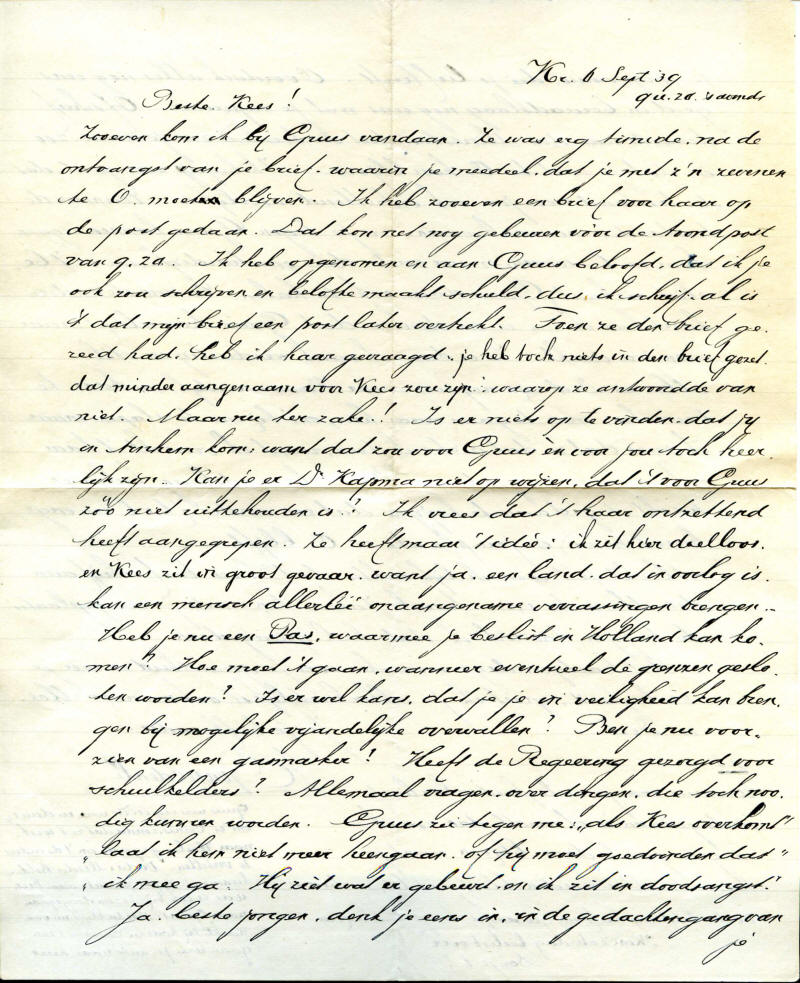 Kr. 6 Sept '39
9 u. 20 's avonds
Beste Kees!
Zooeven kom ik bij Guus vandaan. Ze was erg timide, na de
ontvangst van je brief, waarin je meedeel, dat je met z'n zevenen
te O. moet blijven. Ik heb zooeven een brief voor haar op
de post gedaan. Dat kon net nog gebeuren vóór de avondpost
van 9.20. Ik heb opgenomen en aan Guus beloofd, dat ik je
ook zou schrijven en belofte maakt schuld, dus ik schrijf, al is
't dat mijn brief een post later vertrekt. Toen ze den brief ge-
reed had, heb ik haar gevraagd "je heb toch niets in den brief gezet,
dat minder aangenaam voor Kees zou zijn", waarop ze antwoordde van
niet. Maar nu ter zake! Is er niets op te vinden, dat jij
in Arnhem kom, want dat zou voor Guus èn voor jou toch heer-
lijk zijn. Kan je er Dr Kapma niet op wijzen, dat 't voor Guus
zóó niet uittehouden is? Ik vrees dat 't haar ontzettend
heeft aangegrepen. Ze heeft maar 't idée: ik zit hier doelloos,
en Kees zit in groot gevaar, want ja, een land, dat in oorlog is,
kan een mensch allerléi onaangename verrassingen brengen.-
Heb je nu een Pas, waarmee je beslist in Holland kan ko-
men? Hoe moet 't gaan, wanneer eventueel de grenzen geslo-
ten worden? Is er wel kans, dat je je in veiligheid kan bren-
gen bij mogelijke vijandelijke overvallen? Ben je nu voor-
zien van een gasmasker! Heeft de Regeering gezorgd voor
schuilkelders? Allemaal vragen, over dingen, die toch noo-
dig kunnen worden. Guus zei tegen me: "als Kees overkomt"
"laat ik hem niet meer heengaan, of hij moet goedvinden dat"
"ik mee ga. Hij ziet wat er gebeurt, en ik zit in doodsangst."
Ja, beste jongen, denk je eens in, in de gedachtengang van
je